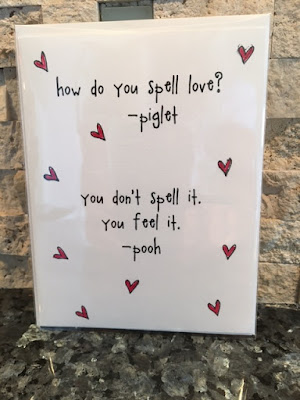 how do you spell love?
-piglet
you don't spell it.
you feel it.
-pooh